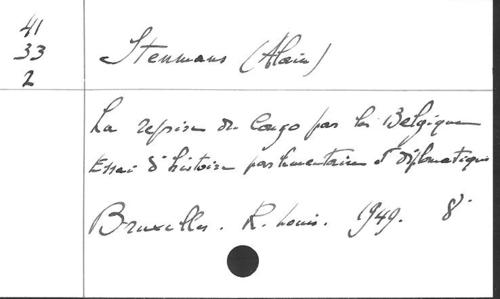 41
33
2
Stenmans (Alain)
La reprise du Congo par la Belgique
Essai d'histoire parlementaire et diplomatique
Bruxelles. R. Louis. 1949. 8°